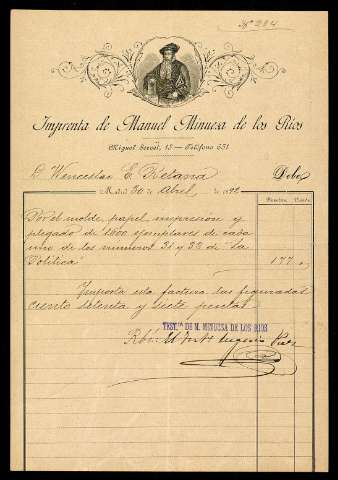 Nº 284
Imprenta de Manuel Minuesa de los Rios
Miguel Servet, 13 — Teléfono 651
D. Wenceslao E. Retana Debe
Madrid 30 de Abril de
Pesetas Cents.
Por el molde, papel impresion y
plegado de 1500 ejemplares de cada
uno de los numeros 31 y 32 de "La
Politica" 177
Importa esta factura las figuradas
ciento setenta y siete pesetas
TEST.ª DE M. MINUESA DE LOS RIOS
Rbi. El